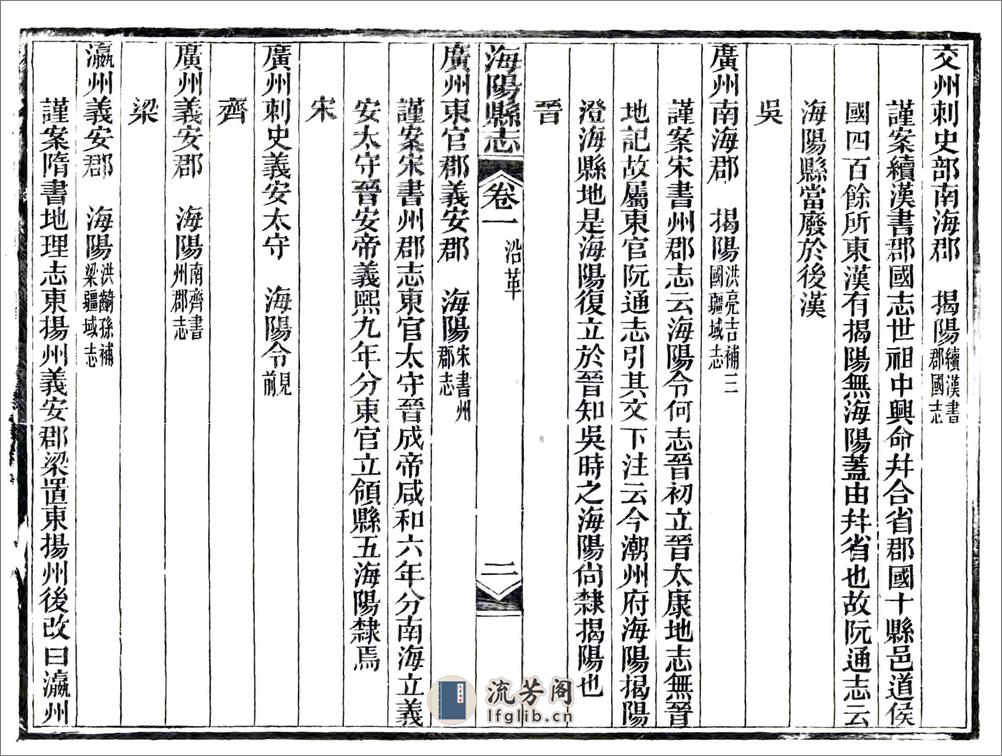 交州刺史部南海郡　揭陽續漢書郡國志
謹案續漢書郡國志世祖中興命幷合省郡國十縣邑道侯
國四百餘所東漢有揭陽無海陽蓋由幷省也故阮通志云
海陽縣當廢於後漢
吳
廣州南海郡　揭陽洪亮吉補三國疆域志
謹案宋書州郡志云海陽令何志晉初立晉太康地志無晉
地記故屬東官阮通志引其文下注云今潮州府海陽揭陽
澄海縣地是海陽復立於晉知吳時之海陽尙隸揭陽也
晉
海陽縣志　卷一　沿革　二
廣州東官郡義安郡　海陽宋書州郡志
謹案宋書州郡志東官太守晉成帝咸和六年分南海立義
安太守晉安帝義熙九年分東官立領縣五海陽隸焉
宋
廣州刺史義安太守　海陽令見前
齊
廣州義安郡　海陽南齊書州郡志
梁
瀛州義安郡　海陽洪齮孫補梁疆域志
謹案隋書地理志東揚州義安郡梁置東揚州後改曰瀛州
流芳阁
lfglib.cn